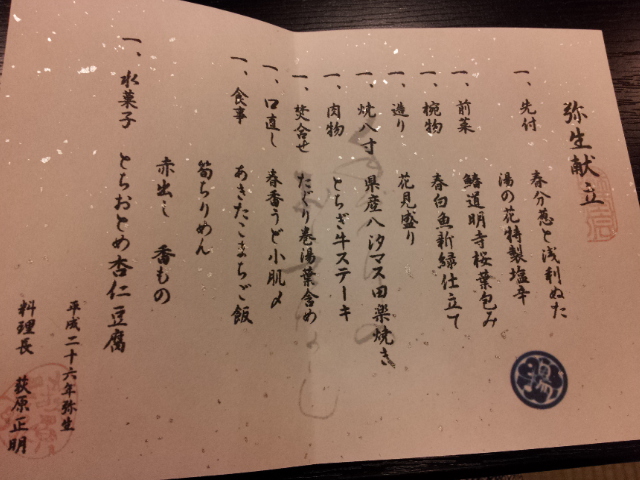 弥生献立
一、先付 春分葱と浅利ぬた
湯の花特製塩辛
一、前菜 鰆道明寺桜葉包み
一、椀物 春白魚新緑仕立て
一、造り 花見盛り
一、焼八寸 県産八汐マス田楽焼き
一、肉物 とちぎ牛ステーキ
一、焚合せ たぐり巻湯葉含め
一、口直し 春番うど小肌〆
一、食事 あきたこまちご飯
筍ちりめん
赤出し 香もの
一、水菓子 とちおとめ杏仁豆腐
平成二十六年弥生
料理長 荻原正明